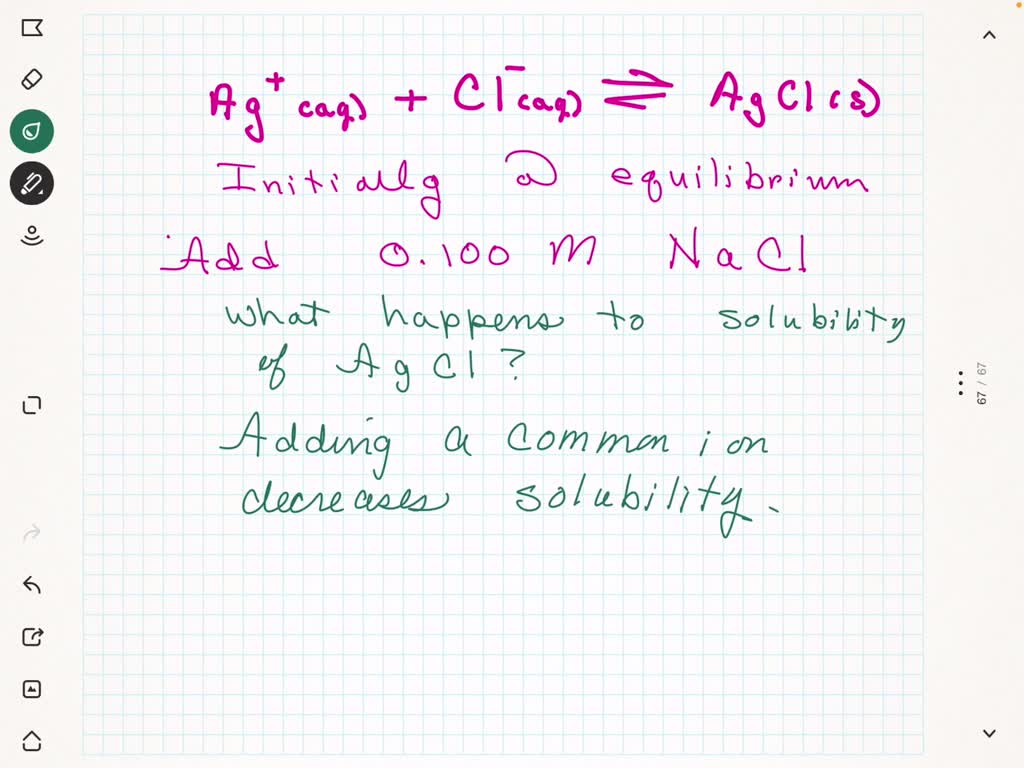 Ag⁺(aq) + Cl⁻(aq) ⇌ AgCl(s)
Initially @ equilibrium
Add 0.100 M NaCl
what happens to solubility
of AgCl?
Adding a common ion
decreases solubility.
67 / 67